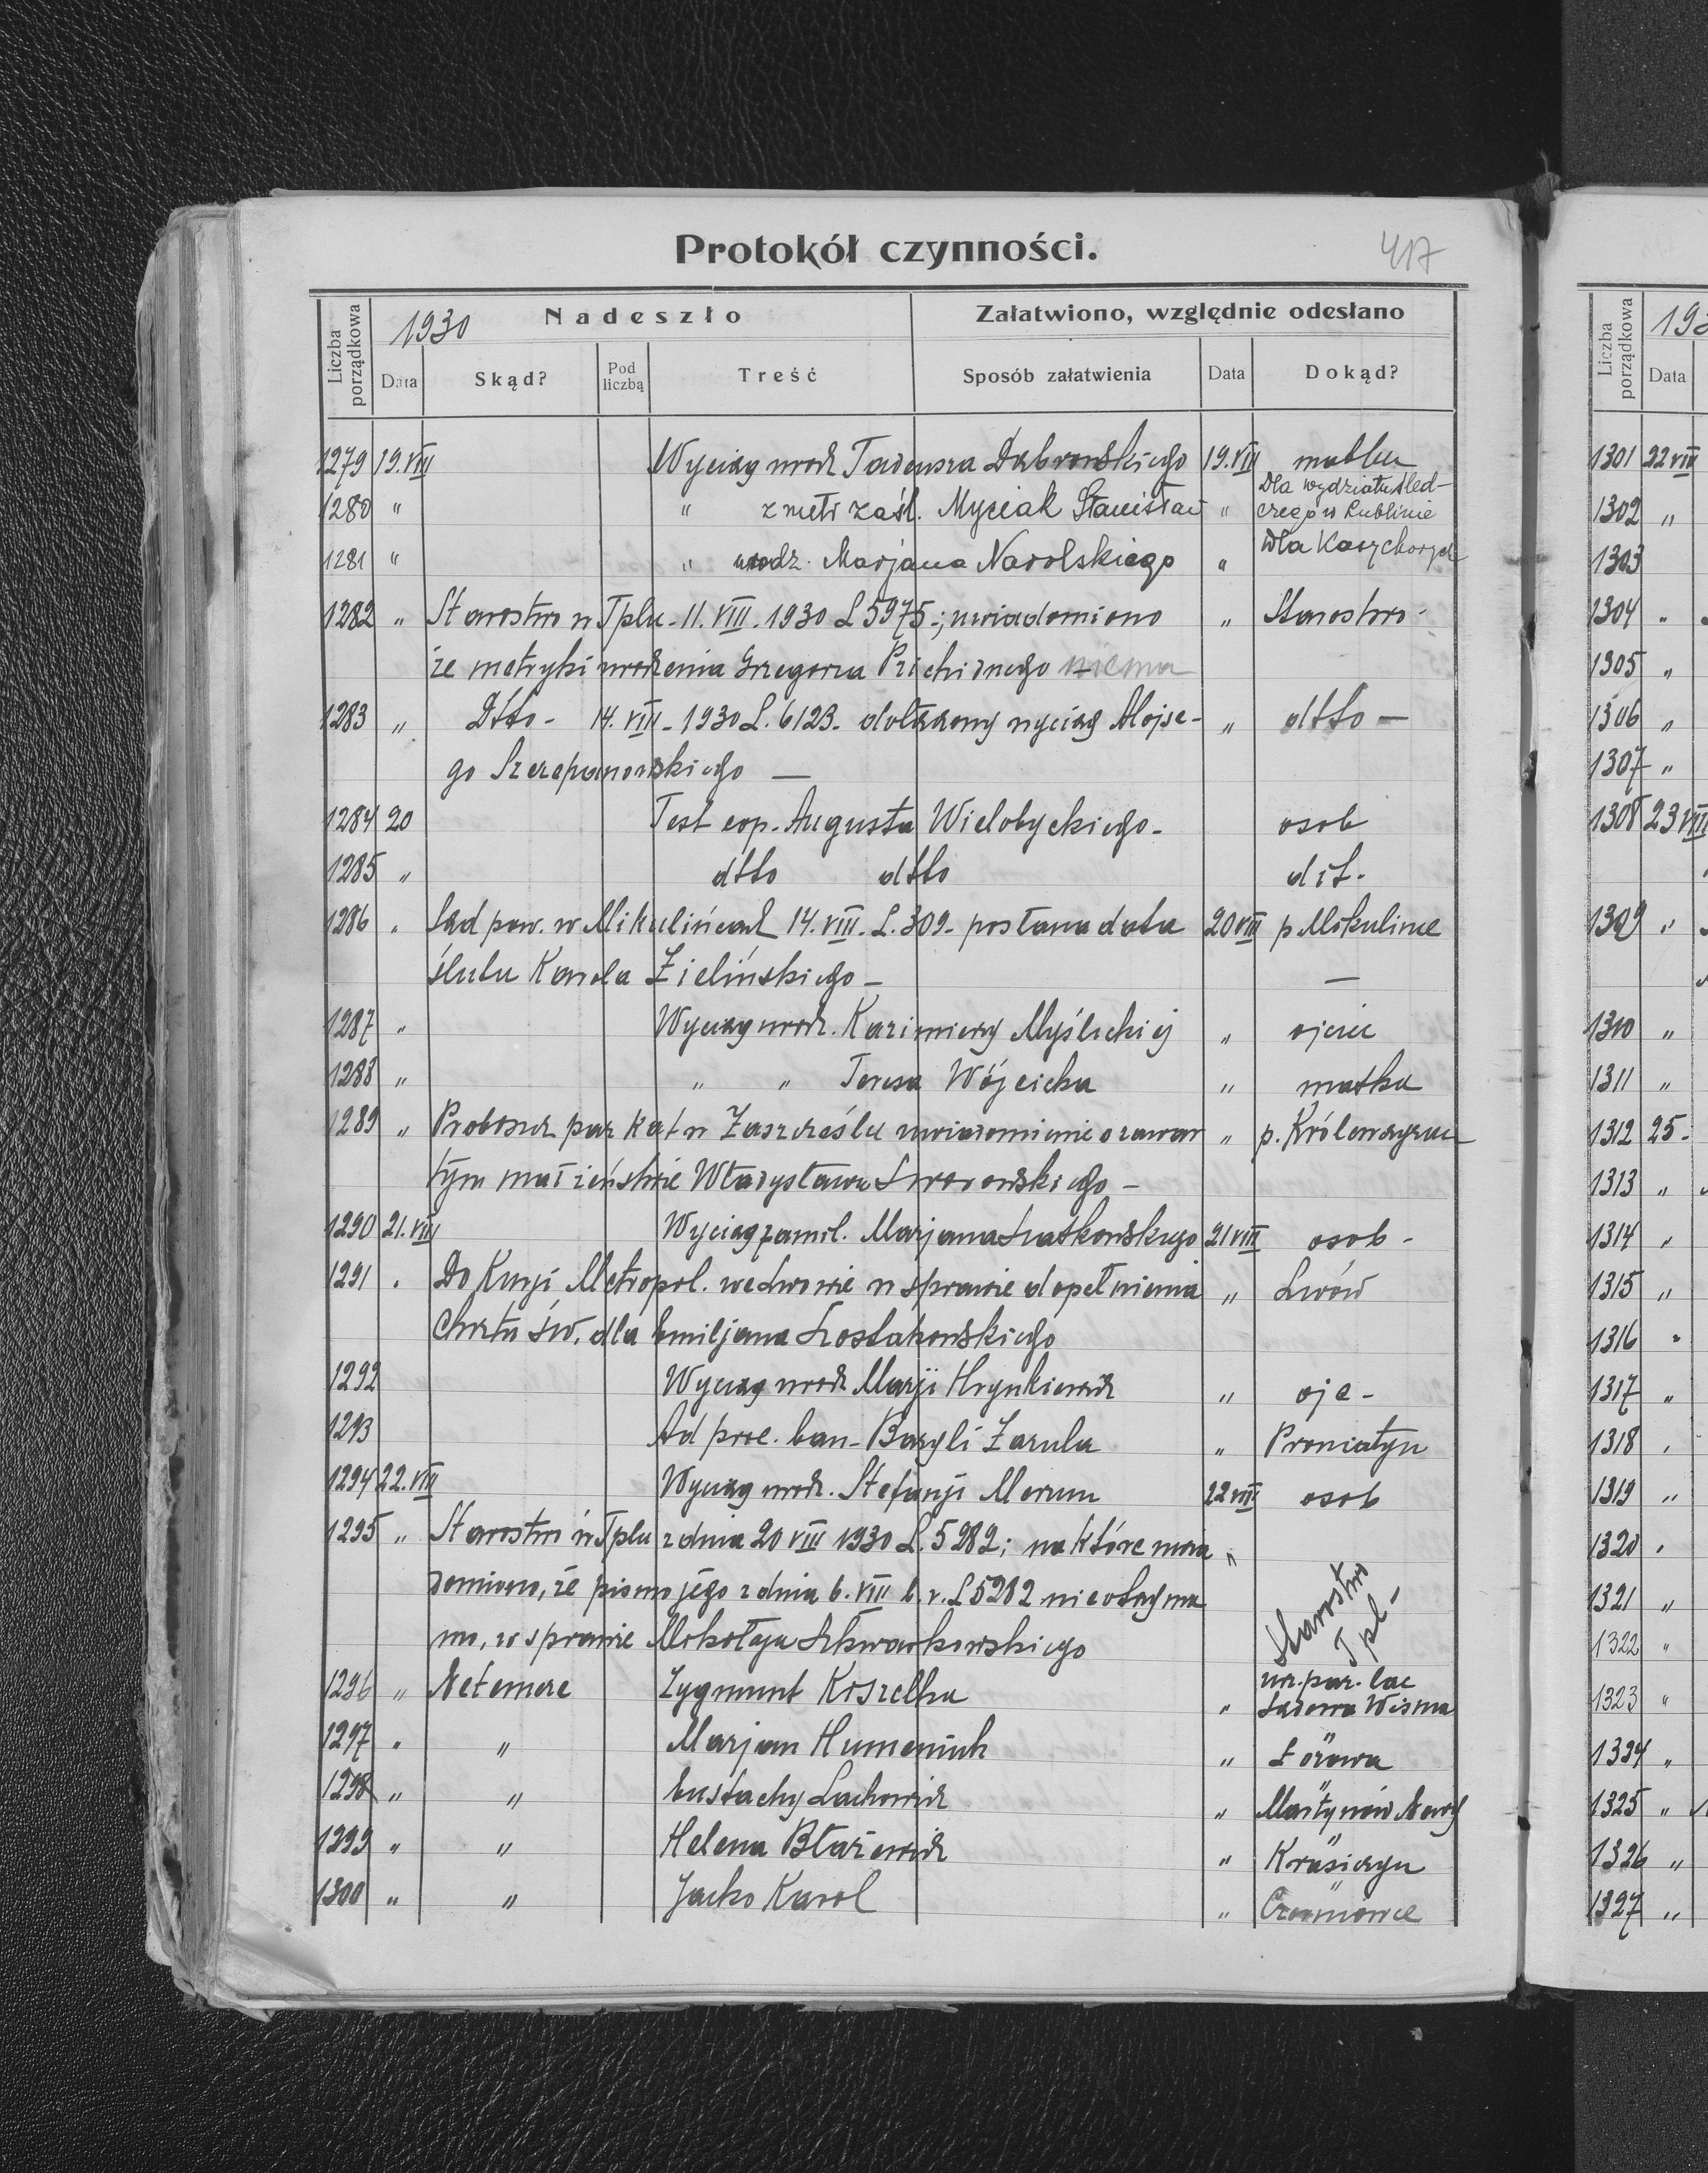 Protokół czynności.
417
Liczba porządkowa
1930
Nadeszło
Załatwiono, względnie odesłano
Data
Skąd?
Pod liczbą
Treść
Sposób załatwienia
Data
Dokąd?
1279 19.VIII Wyciąg urodz Tadeusza Dąbrowskiego 19.VIII matka
1280 " " z metr zaśl. Myciak Stanisław " Dla wydziału śled-
czego w Lublinie
1281 " " urodz. Marjana Narolskiego " Dla Kasy chorych
1282 " Starostwo w Tplu - 11.VIII.1930 L 5975; uwiadomiono " Starostwo -
że metryki urodzenia Grzegorza niema
1283 " Dtto - 14.VIII - 1930 L. 6123 - wyciąg Alojze- " dtto -
go Szczepanowskiego -
1284 20 Test cop. Augusta Wielobyckiego - osob
1285 " dtto dtto dit.
1286 " Sąd pow. w Mikulińcach 14.VIII. L. 309 - posłana data 20 VIII p Mikulińce
ślubu Karola Zielińskiego - -
1287 " Wyciąg urodz. Kazimiery Myślickiej " ojciec
1288 " " " Teresa Wójcicka " matka
1289 " Proboszcz par kat w Zaszcześlu uwiadomienie o zawar "
tym małżeństwie Władysława -
1290 21.VIII Wyciąg zamił. Marjana 21 VIII osob -
1291 " Do Kurji Metropol. we Lwowie w sprawie dopełnienia " Lwów
Chrztu św. dla Emiljana
1292 Wyciąg urodz Marji Hrynkiewicz " ojc -
1293 Ad proc. ban - Bazyli Zazula " Proniatyn
1294 22.VIII Wyciąg urodz. Stefanji 22 VIII osob
1295 " Starostwo w Tplu z dnia 20 VIII 1930 L. 5282; na które uwia "
domiono, że pismo jego z dnia 6.VIII b.r. L 5282 nie otrzyma
no, w sprawie Mikołaja
Starostwo
Tpl -
1296 " Ne temere Zygmunt Koszelka " urz. par. łac
Sądowa Wisznia
1297 " " Marjan Humeniuk " Łozowa
1298 " " Eustachy Lachowicz " Martynów Nowy
1299 " " Helena Błażewicz "
1300 " " Jacko Karol "
Liczba porządkowa
193
Data
1301 22 VIII
1302 "
1303
1304 "
1305 "
1306 "
1307 "
1308 23 VIII
1309 "
1310 "
1311 "
1312 25 -
1313 "
1314 "
1315 "
1316 "
1317 "
1318 "
1319 "
1320 "
1321 "
1322 "
1323 "
1324 "
1325 "
1326 "
1327 "